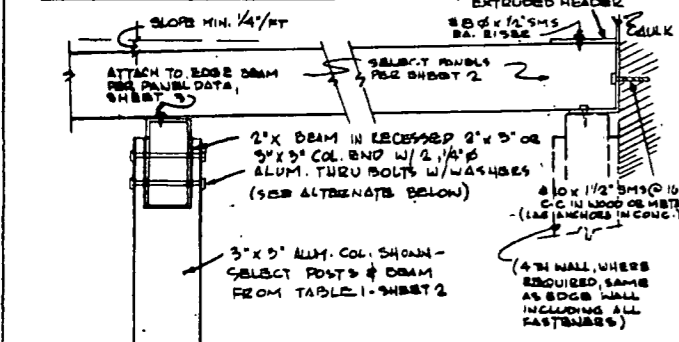 EXTRUDED HEADER
SLOPE MIN. 1/4"/FT
#8 Ø x 1/2" SMS
EA. RISER
CAULK
ATTACH TO EDGE BEAM
PER PANEL DATA,
SHEET 3
SELECT PANELS
PER SHEET 2
2" X BEAM IN RECESSED 2" x 3" OR
3" x 3" COL. END W/ 2, 1/4" Ø
ALUM. THRU BOLTS W/ WASHERS
(SEE ALTERNATE BELOW)
#10 x 1 1/2" SMS @ 16
C-C IN WOOD OR META
(LAG ANCHORS IN CONC.)
3" x 3" ALUM. COL. SHOWN -
SELECT POSTS & BEAM
FROM TABLE 1 - SHEET 2
(4TH WALL, WHERE
REQUIRED, SAME
AS EDGE WALL
INCLUDING ALL
FASTENERS)